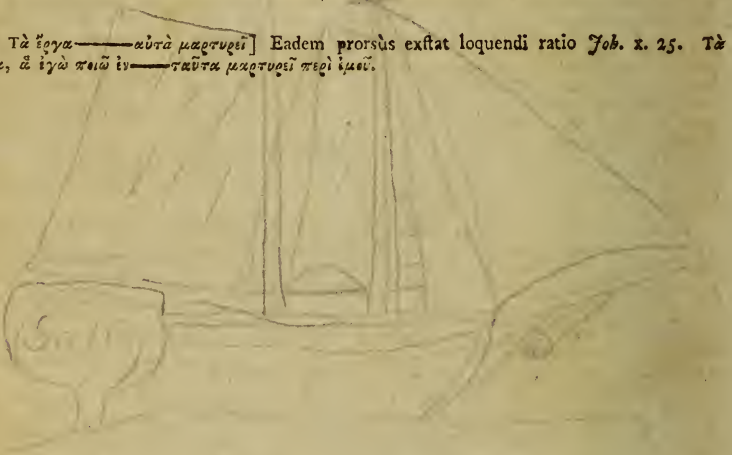 Τὰ ἔργα——αὐτὰ μαρτυρεῖ] Eadem prorsùs exſtat loquendi ratio Joh. x. 25. Τὰ
, ἃ ἐγὼ ποιῶ ἐν——ταῦτα μαρτυρεῖ περὶ ἐμοῦ.